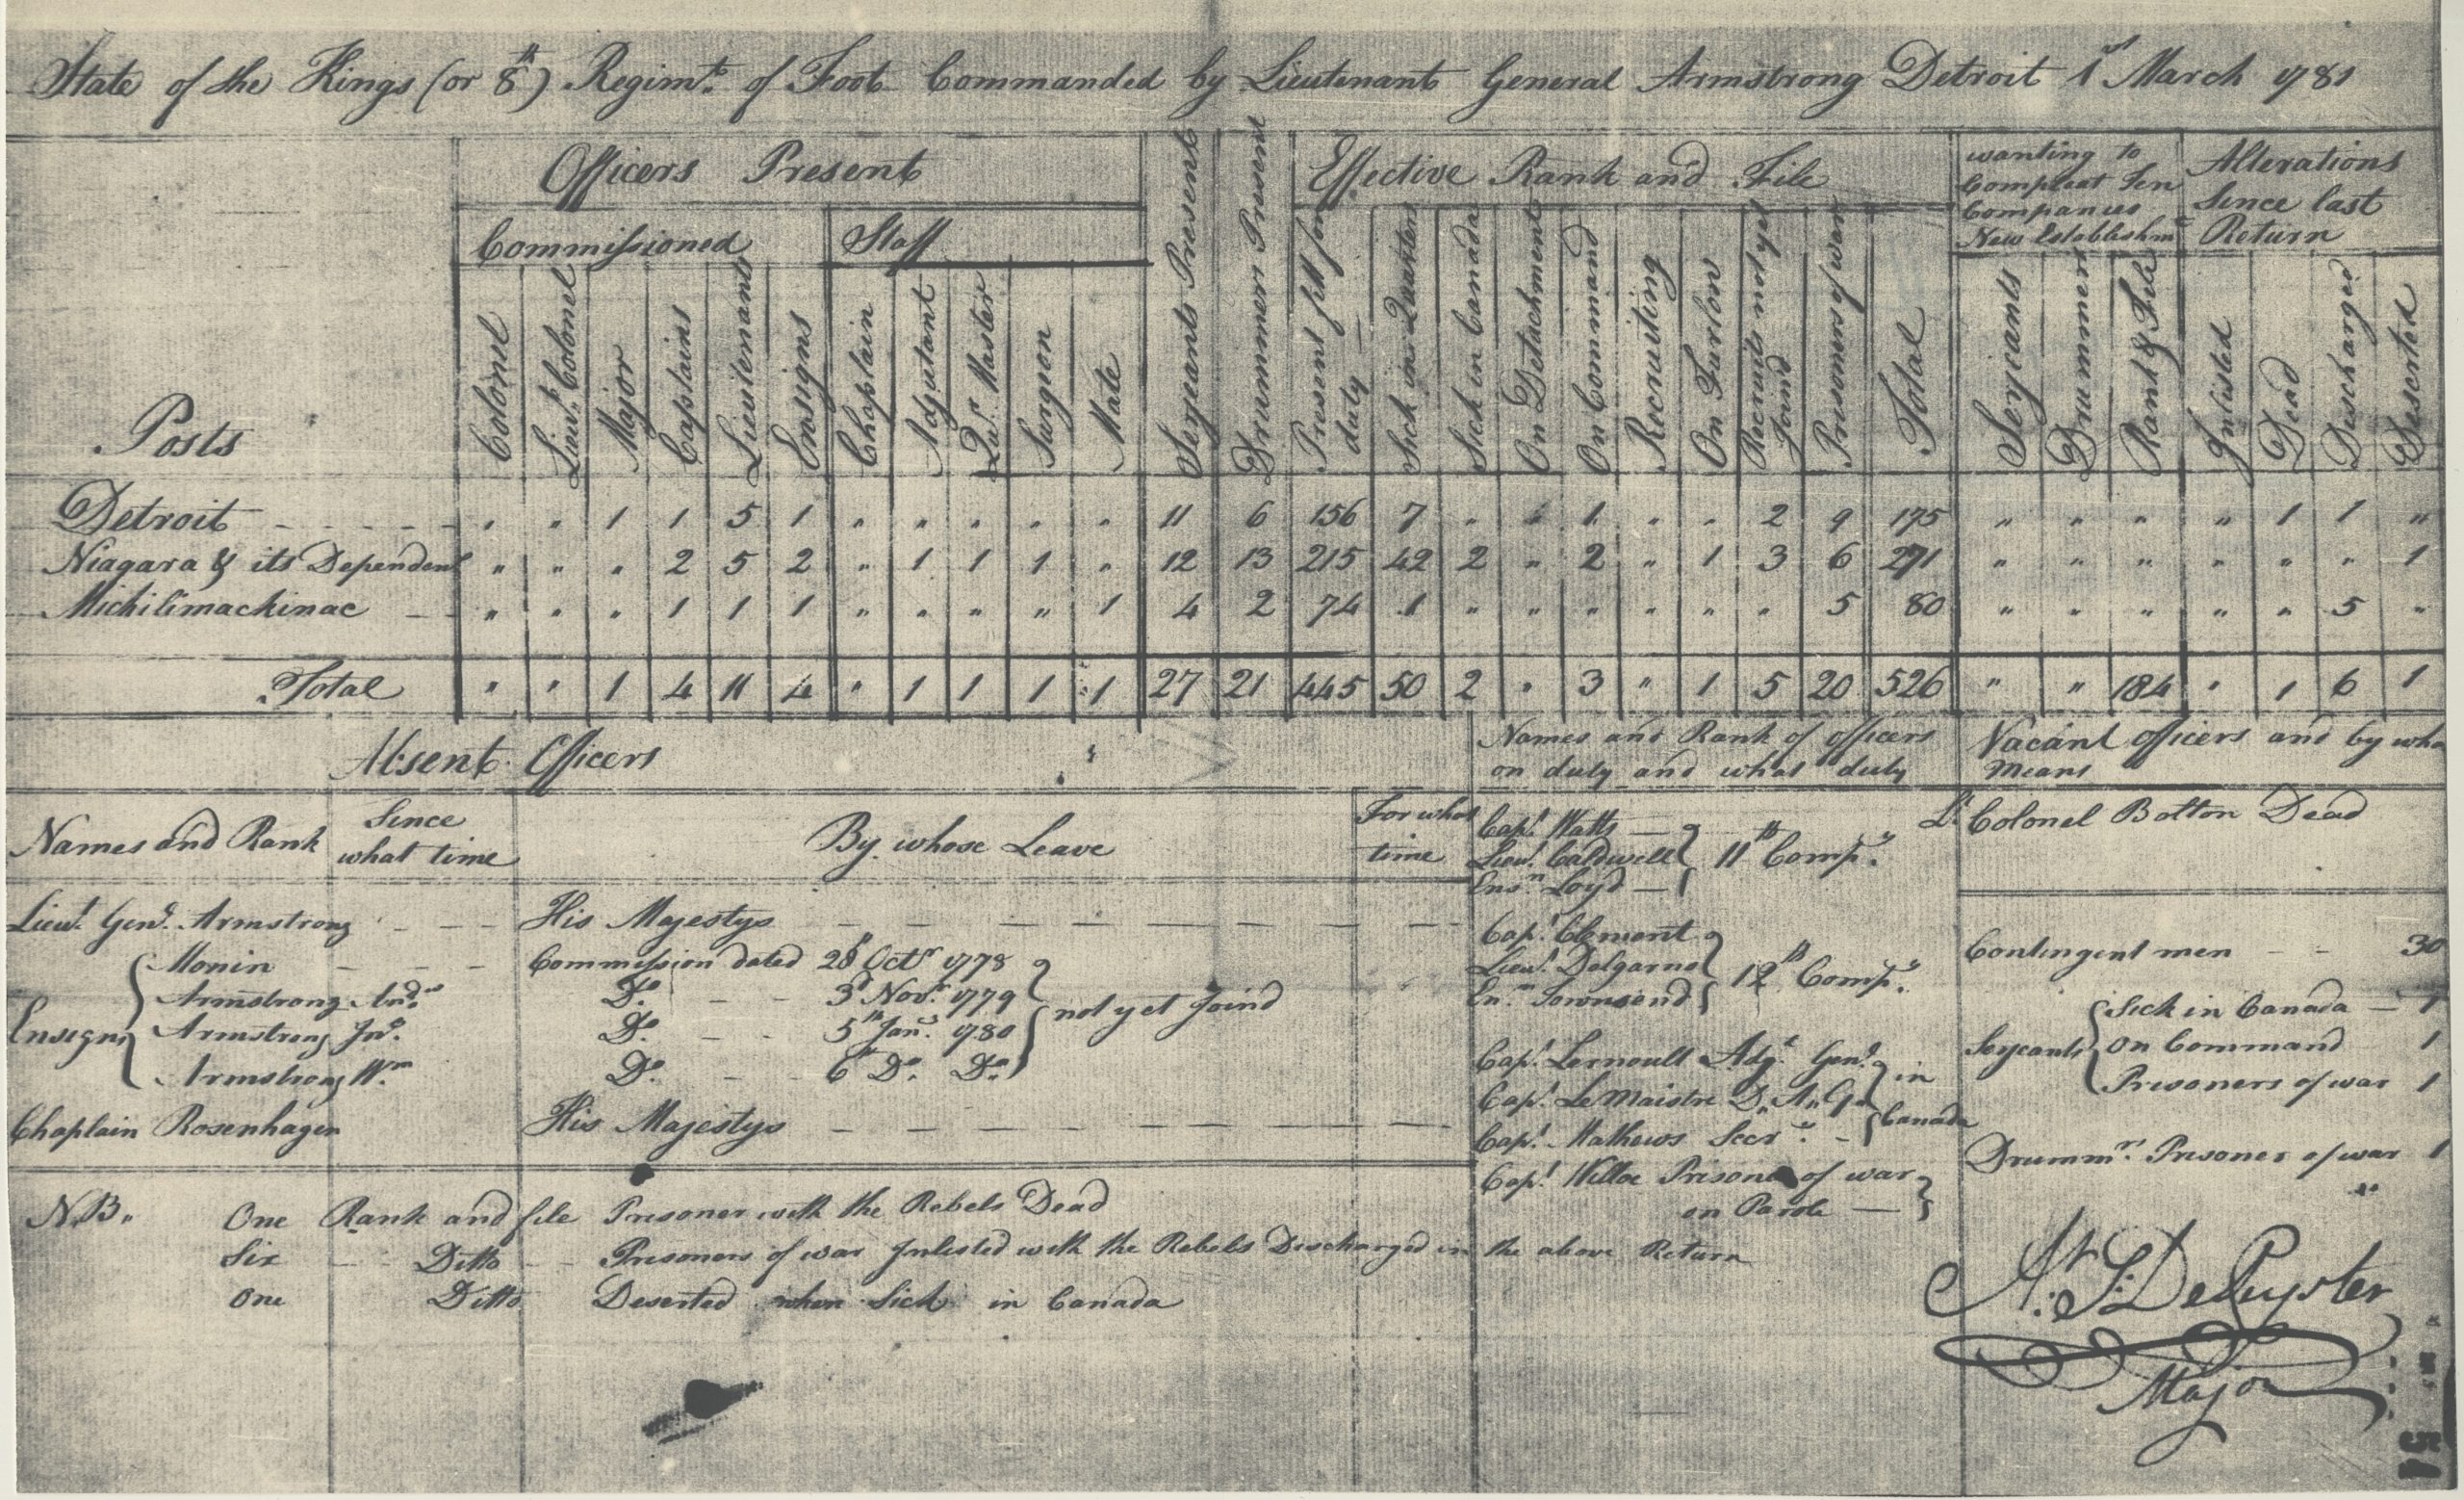 State of the Kings (or 8th) Regimt. of Foot Commanded by Lieutenant General Armstrong Detroit 1st March 1781
Officers Present
Commissioned
Staff
Serjeants Present
Drummers Present
Effective Rank and File
wanting to
Compleat Ten
Companies
New Establishmt
Alterations
Since last
Return
Posts
Colonel
Lieut. Colonel
Major
Captains
Lieutenants
Ensigns
Chaplain
Adjutant
Qur. Master
Surgeon
Mate
Present fitt for
duty
Sick in Quarters
Sick in Canada
On Detachment
On Command
Recruiting
On Furlow
Recruits not yet
Joind
Prisoners of war
Total
Serjeants
Drummers
Rank & File
Inlisted
Dead
Discharged
Deserted
Detroit " " 1 1 5 1 " " " " " 11 6 156 7 " " 1 " " 2 9 175 " " " " 1 1 "
Niagara & its Dependent " " " 2 5 2 " 1 1 1 " 12 13 215 42 2 " 2 " 1 3 6 271 " " " " " " 1
Michilimackinac " " " 1 1 1 " " " " 1 4 2 74 1 " " " " " " 5 80 " " " " " 5 "
Total " " 1 4 11 4 " 1 1 1 1 27 21 445 50 2 " 3 " 1 5 20 526 " " 184 " 1 6 1
Absent Officers
Names and Rank
Since
what time
By whose Leave
For what
time
Lieut. Genl. Armstrong - - - His Majestys
Ensigns
Monin - - - Commission dated 28th Octr. 1778
Armstrong Andw. Do. - - 3d Novr. 1779
Armstrong Jno. Do. - - 5th Jany. 1780
Armstrong Wm. Do. - - 6th Do. Do.
not yet Joind
Chaplain Rosenhagen His Majestys
Names and Rank of officers
on duty and what duty
Capt. Watts
Lieut. Caldwell
Ensn. Loyd
11th Compy.
Capt. Clemont
Lieut. Dalgarno
En.n Townsend
12th Compy.
Capt. Lernoult Adjt. Genl.
Capt. LeMaistre D. A. G.
Capt. Mathews Secry.
in
Canada
Capt. Willoe Prisoner of war
on Parole
Vacant officers and by who
means
Lt. Colonel Bolton Dead
Contingent men - - 30
Serjeants
Sick in Canada - 1
On Command 1
Prisoners of war 1
Drummrs. Prisoner of war 1
N.B. One Rank and file Prisoner with the Rebels Dead
Six Ditto Prisoners of war Inlisted with the Rebels Discharged in the above Return
One Ditto Deserted when Sick in Canada
At. S: DePeyster
Major
51